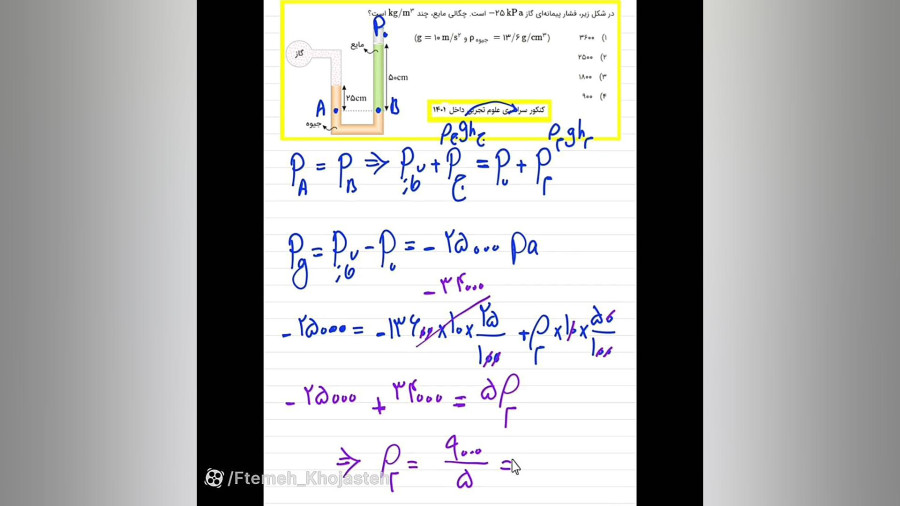 در شکل زیر، فشار پیمانه‌ای گاز ۲۵ kPa− است. چگالی مایع، چند kg/m³ است؟
(g = ۱۰ m/s² و ρ جیوه = ۱۳/۶ g/cm³)
۱) ۳۶۰۰
۲) ۲۵۰۰
۳) ۱۸۰۰
۴) ۹۰۰
کنکور سراسری علوم تجربی داخل ۱۴۰۱
P₀
مایع
گاز
۵۰cm
۲۵cm
A
B
جیوه
ρج g hج
ρم g hم
P_A = P_B ⇒ Pگاز + Pج = P₀ + Pم
Pg = Pگاز − P₀ = − ۲۵۰۰۰ Pa
− ۳۴۰۰۰
− ۲۵۰۰۰ = − ۱۳۶۰۰ × ۱۰ × ۲۵/۱۰۰ + ρم × ۱۰ × ۵۰/۱۰۰
− ۲۵۰۰۰ + ۳۴۰۰۰ = ۵ρم
⇒ ρم = ۹۰۰۰/۵ =
/Ftemeh_Khojasteh